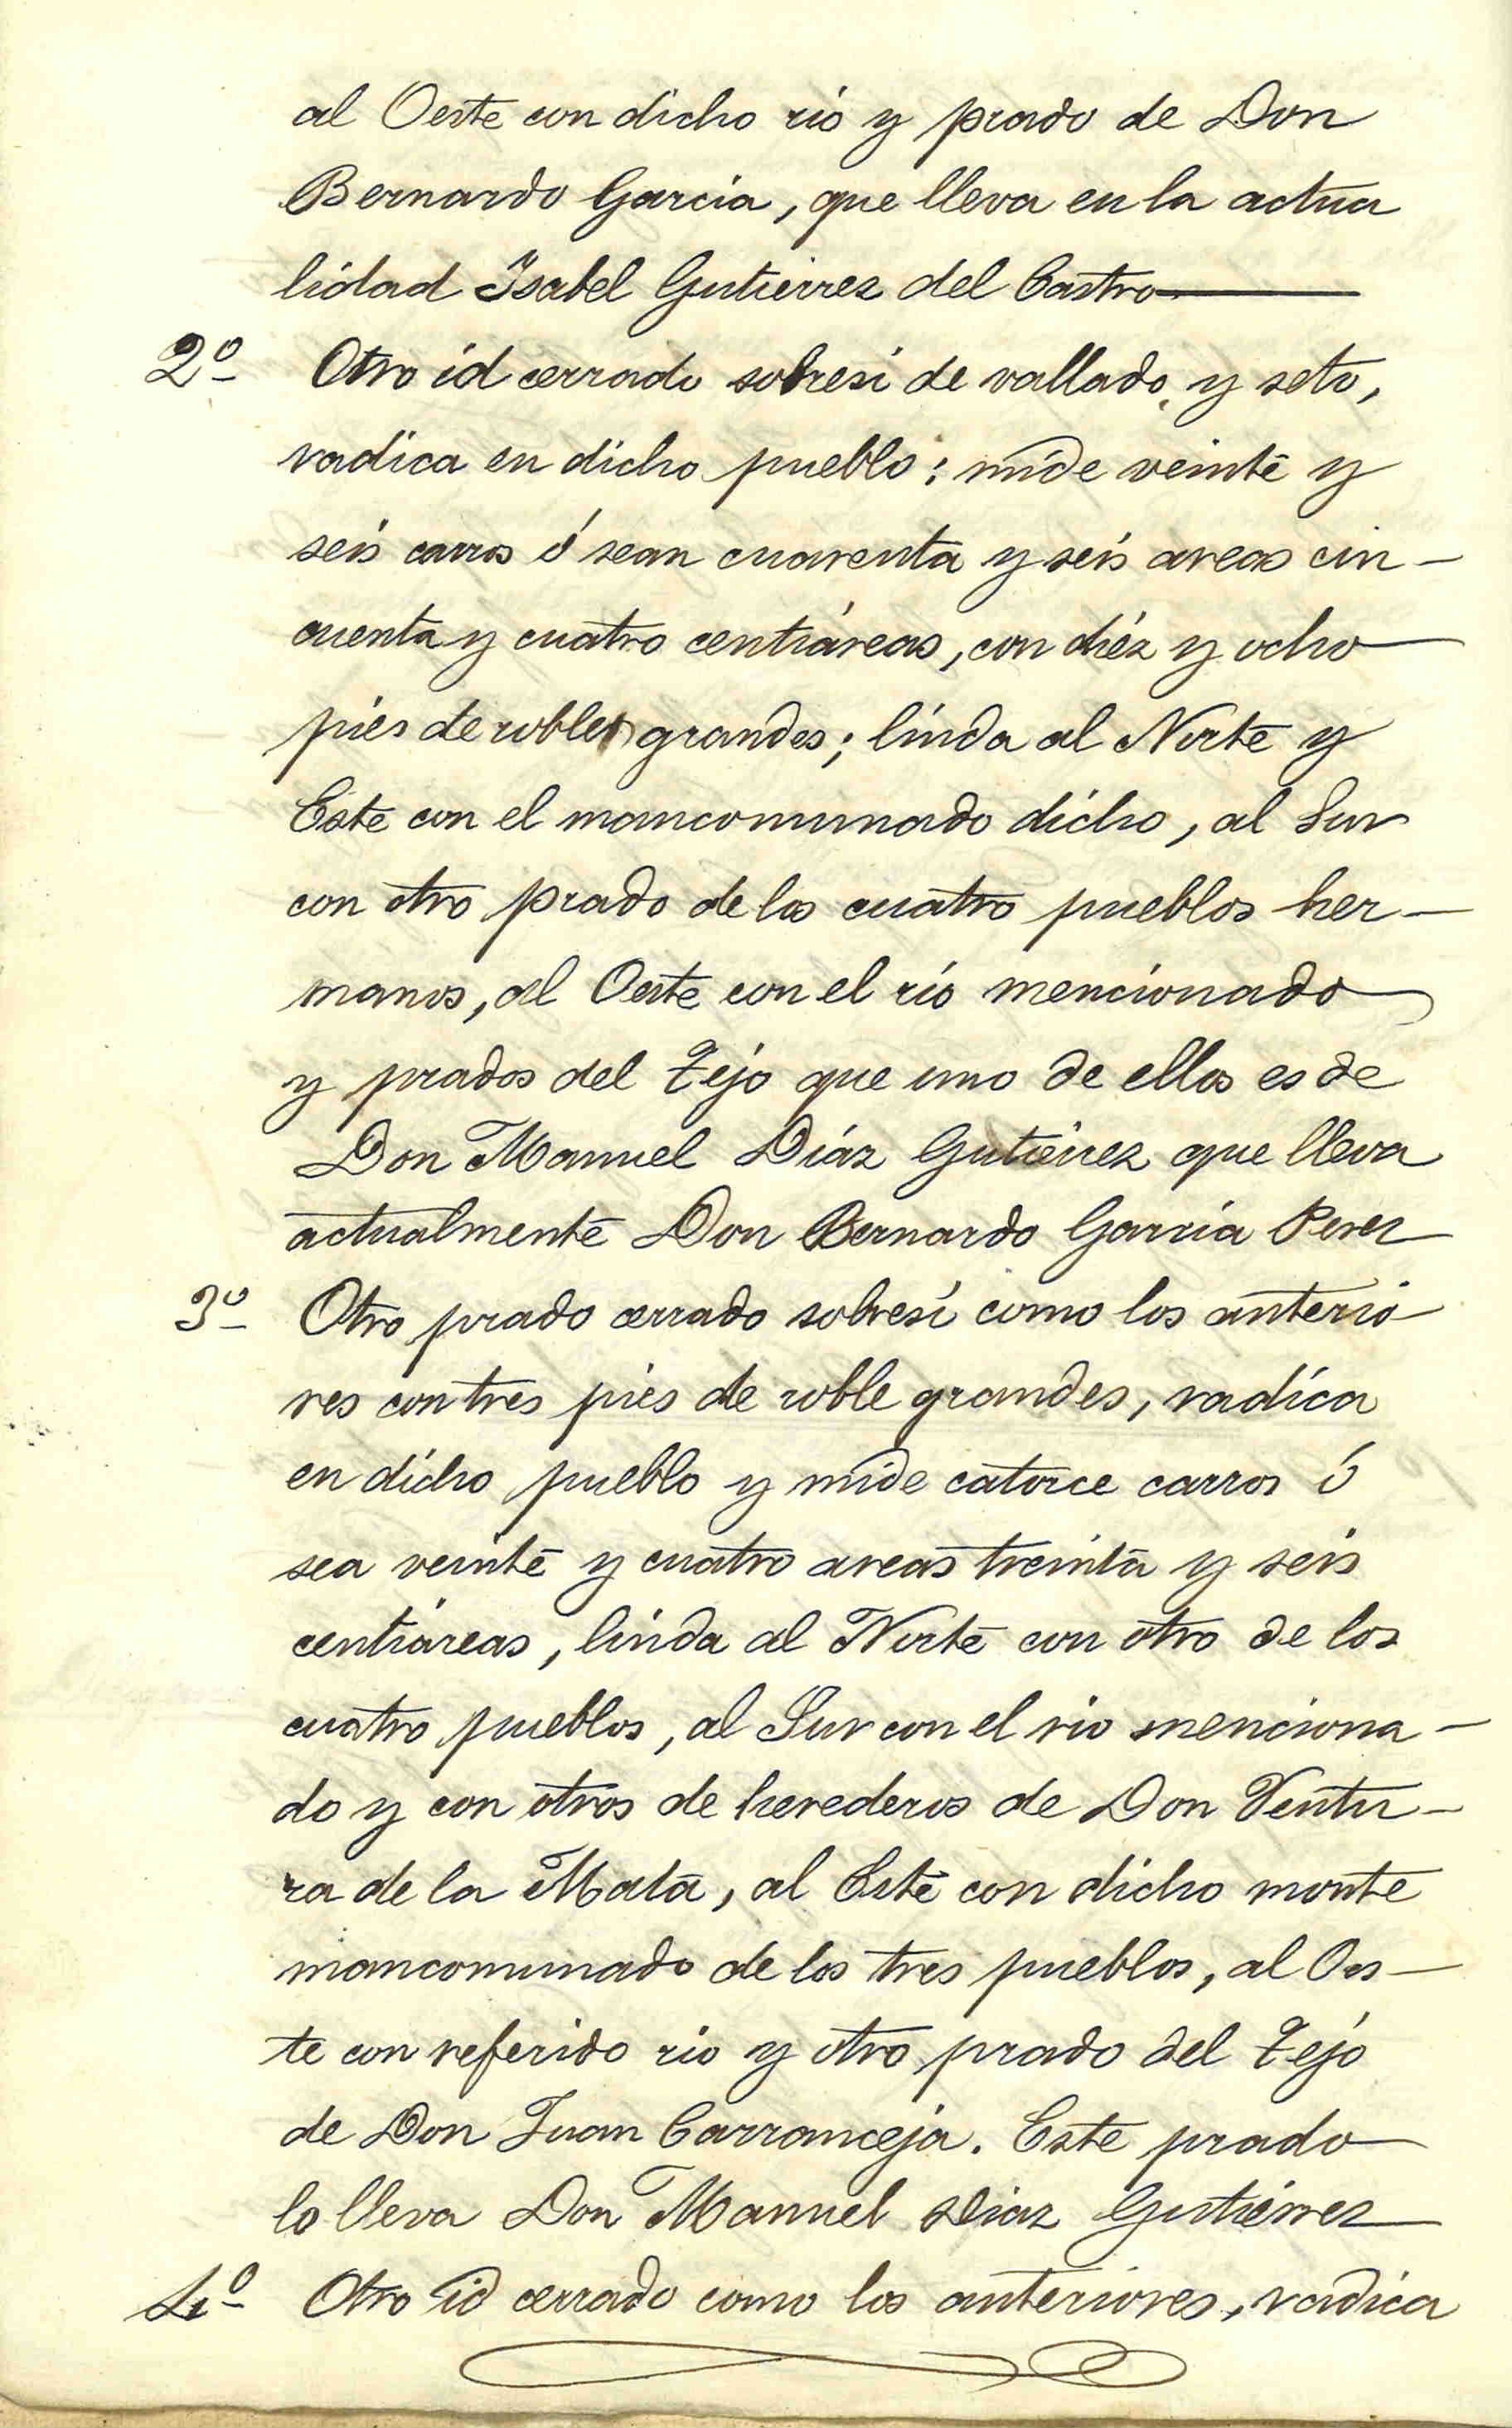 al Oeste con dicho rió y prado de Don
Bernardo Garcia, que lleva en la actua
lidad Isabel Gutierrez del Castro —
2º Otro id cerrado sobresi de vallado, y seto,
radica en dicho pueblo; mide veinte y
seis carros ó sean cuarenta y seis areas cin-
cuenta y cuatro centiáreas, con diéz y ocho
piés de robles grandes; linda al Norte y
Este con el mancomunado dicho, al Sur
con otro prado de los cuatro pueblos her-
manos, al Oeste con el rió mencionado
y prados del Tejo que uno de ellos es de
Don Manuel Diáz Gutiérrez que lleva
actualmente Don Bernardo Garcia Perez
3º Otro prado cerrado sobresí como los anterio-
res con tres piés de roble grandes, radíca
en dicho pueblo y mide catorce carros ó
sea veinte y cuatro areas treinta y seis
centiáreas, linda al Norte con otro de los
cuatro pueblos, al Sur con el rio menciona-
do y con otros de herederos de Don Ventu-
ra de la Mata, al Este con dicho monte
mancomunado de los tres pueblos, al Oes-
te con referido rio y otro prado del Tejo
de Don Juan Carranceja. Este prado
lo lleva Don Manuel Diaz Gutiérrez
4º Otro id cerrado como los anteriores, radica